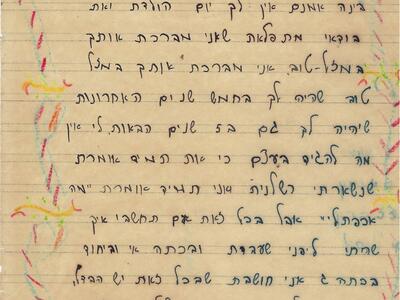 בינה אמנם אין לך יום הולדת ואת
בודאי מתפלאת שאני מברכת אותך
במזל-טוב. אני מברכת אותך במזל
טוב שהיה לך בחמש שנים האחרונות
שיהיה לך גם ב5 שנים הבאות. לי אין
מה להגיד בעצם כי את תמיד אומרת
שנשארתי רשלנית ואני תמיד אומרת "מה
אכפת לי" אבל בכל זאת אם תחשבי איך
שהיתי לפני שעברת ובכתה א' וביחוד
בכתה ג אני חושבת שבכל זאת יש הבדל,